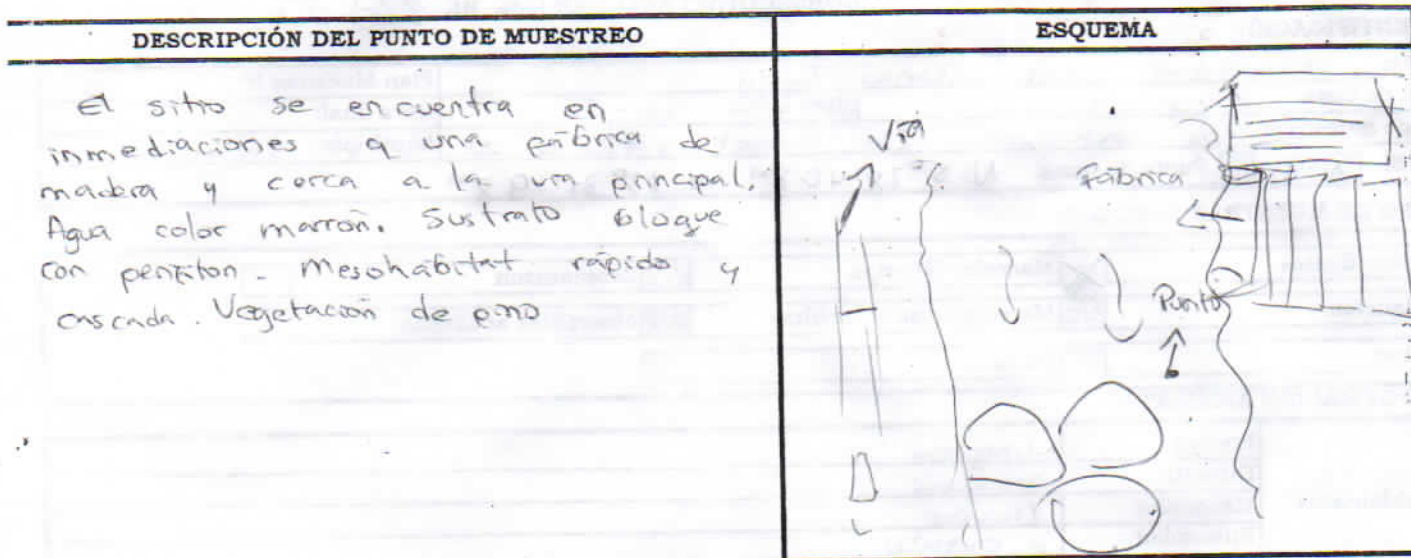 DESCRIPCIÓN DEL PUNTO DE MUESTREO
El sitio se encuentra en
inmediaciones a una fábrica de
madera y cerca a la principal.
Agua color marrón. Sustrato bloque
con Mesohábitat rápido y
cascada. Vegetación de pino
ESQUEMA
Vía
Fábrica
Punto